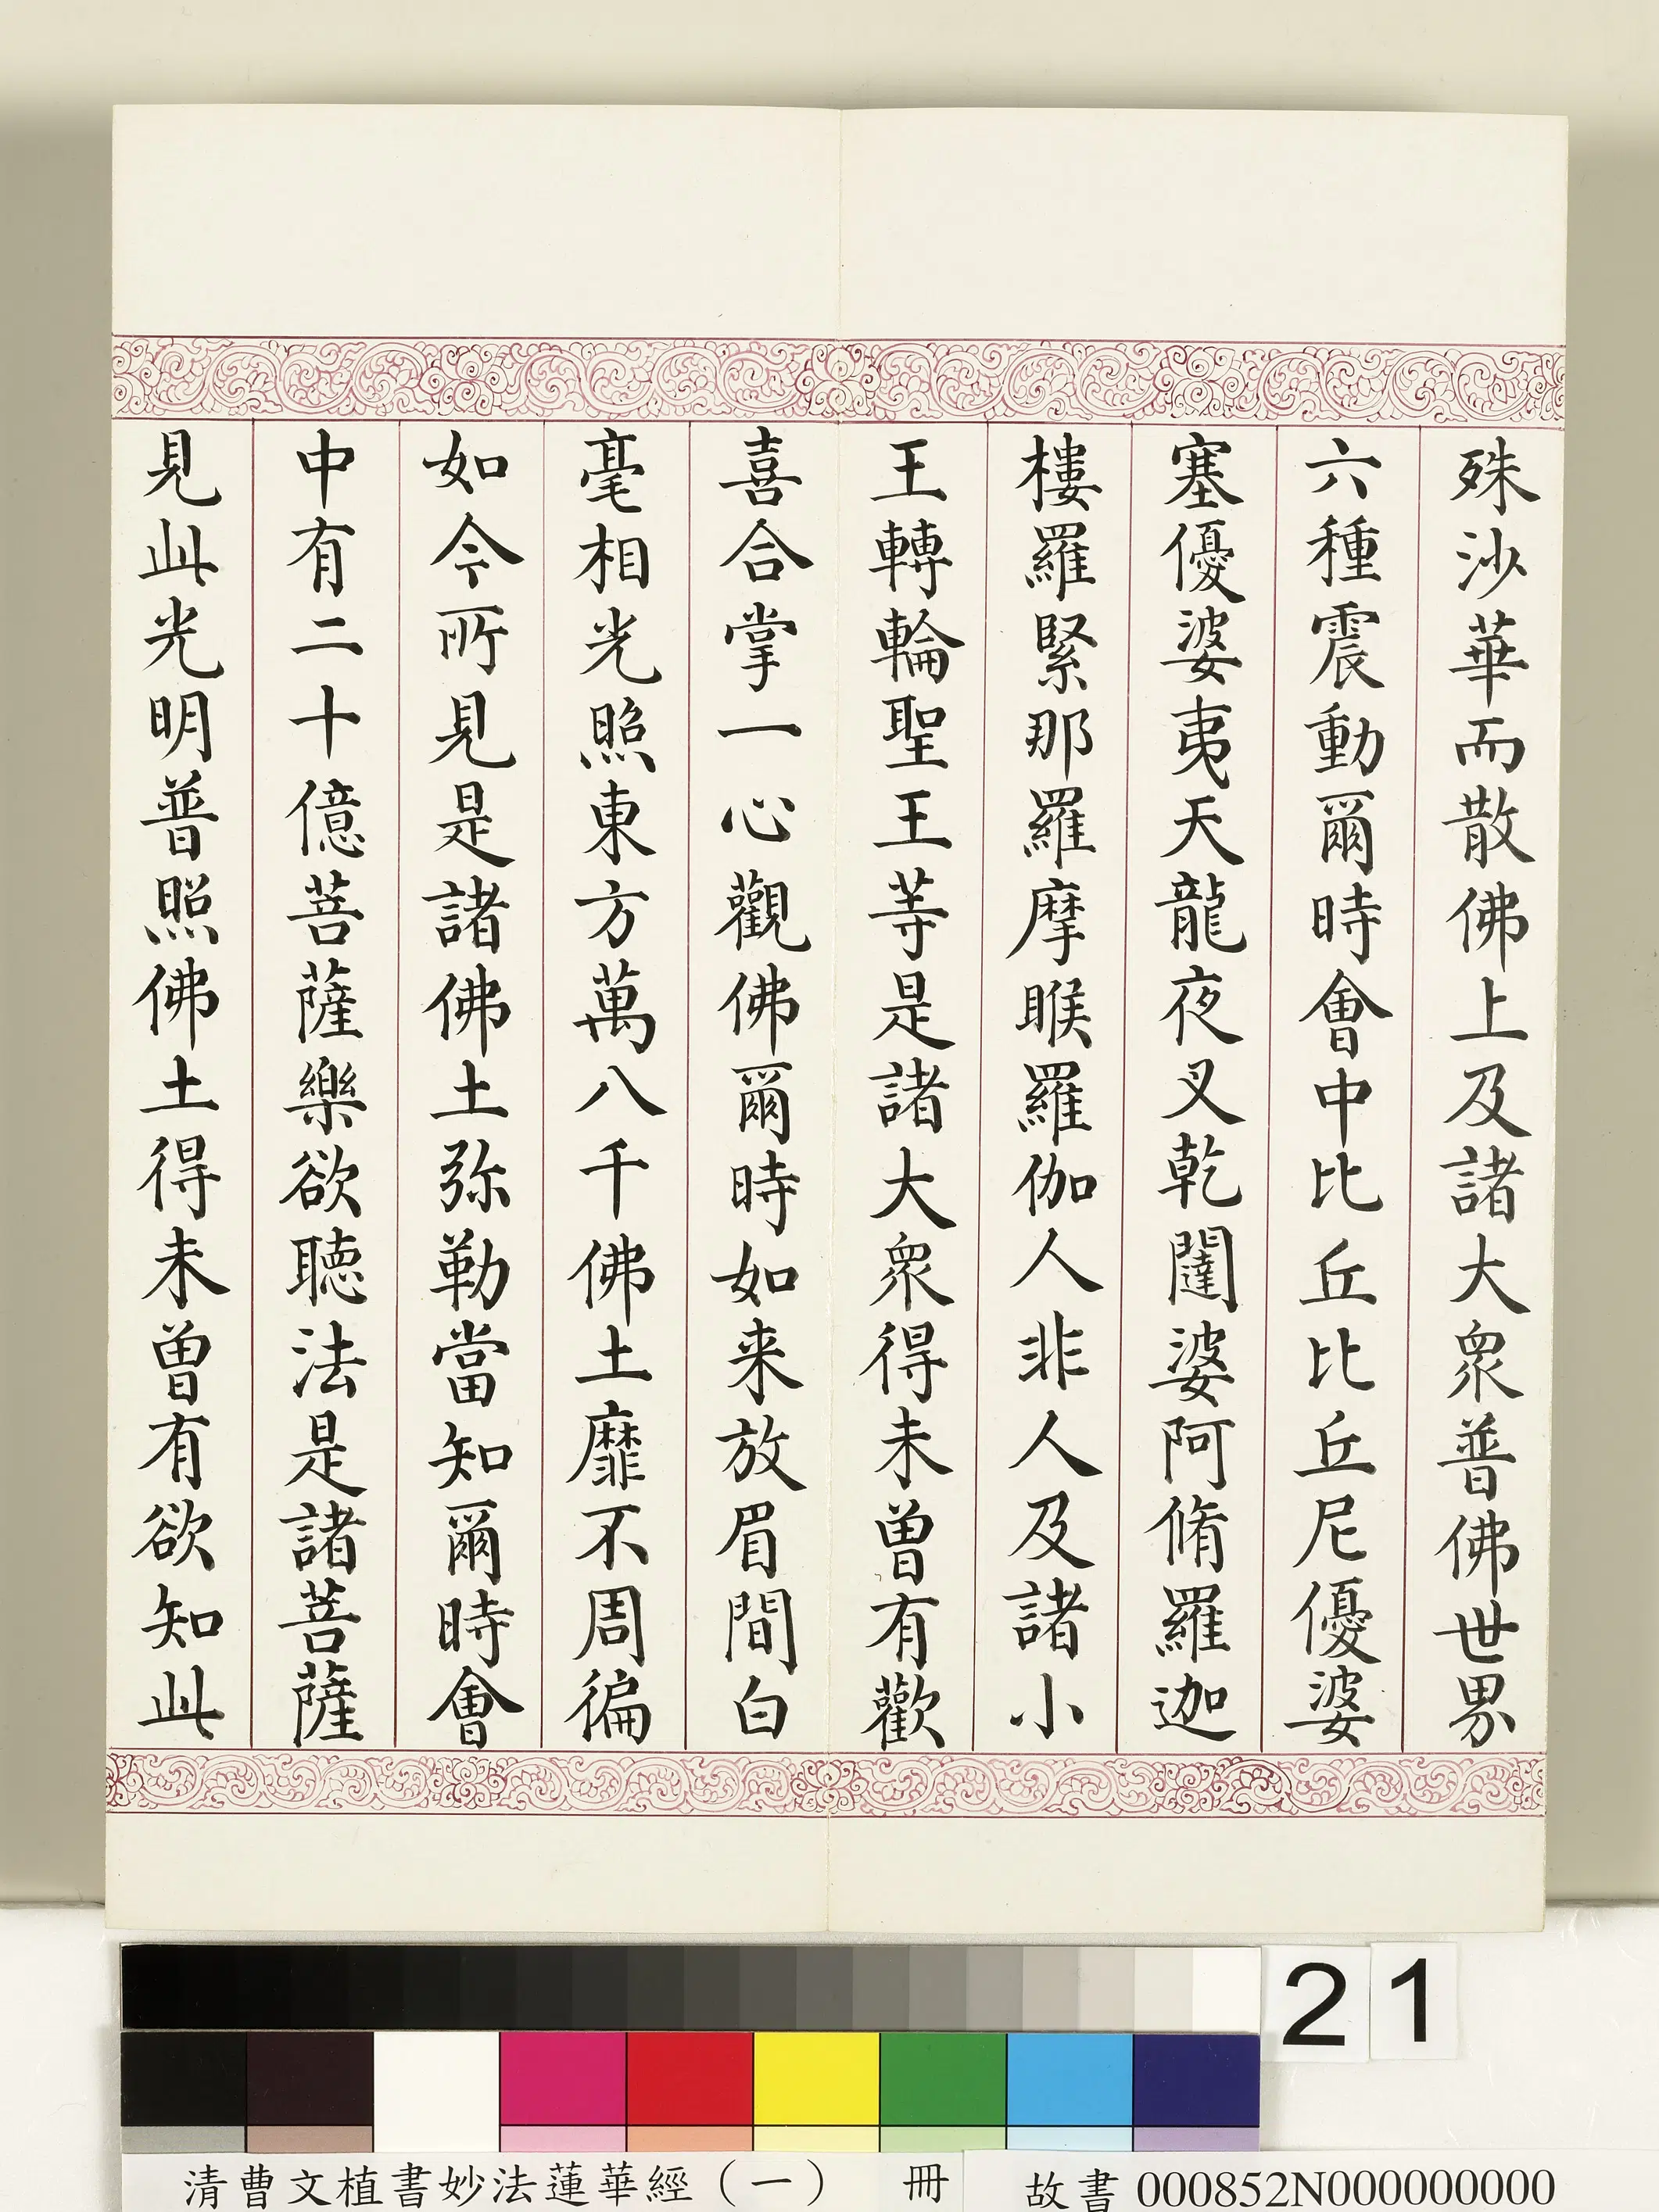 殊沙華而散佛上及諸大衆普佛世界
六種震動爾時會中比丘比丘尼優婆
塞優婆夷天龍夜叉乾闥婆阿脩羅迦
樓羅緊那羅摩睺羅伽人非人及諸小
王轉輪聖王等是諸大衆得未曾有歡
喜合掌一心觀佛爾時如来放眉間白
毫相光照東方萬八千佛土靡不周徧
如今所見是諸佛土弥勒當知爾時會
中有二十億菩薩樂欲聽法是諸菩薩
見此光明普照佛土得未曾有欲知此
21
清曹文植書妙法蓮華經（一） 冊 故書000852N000000000